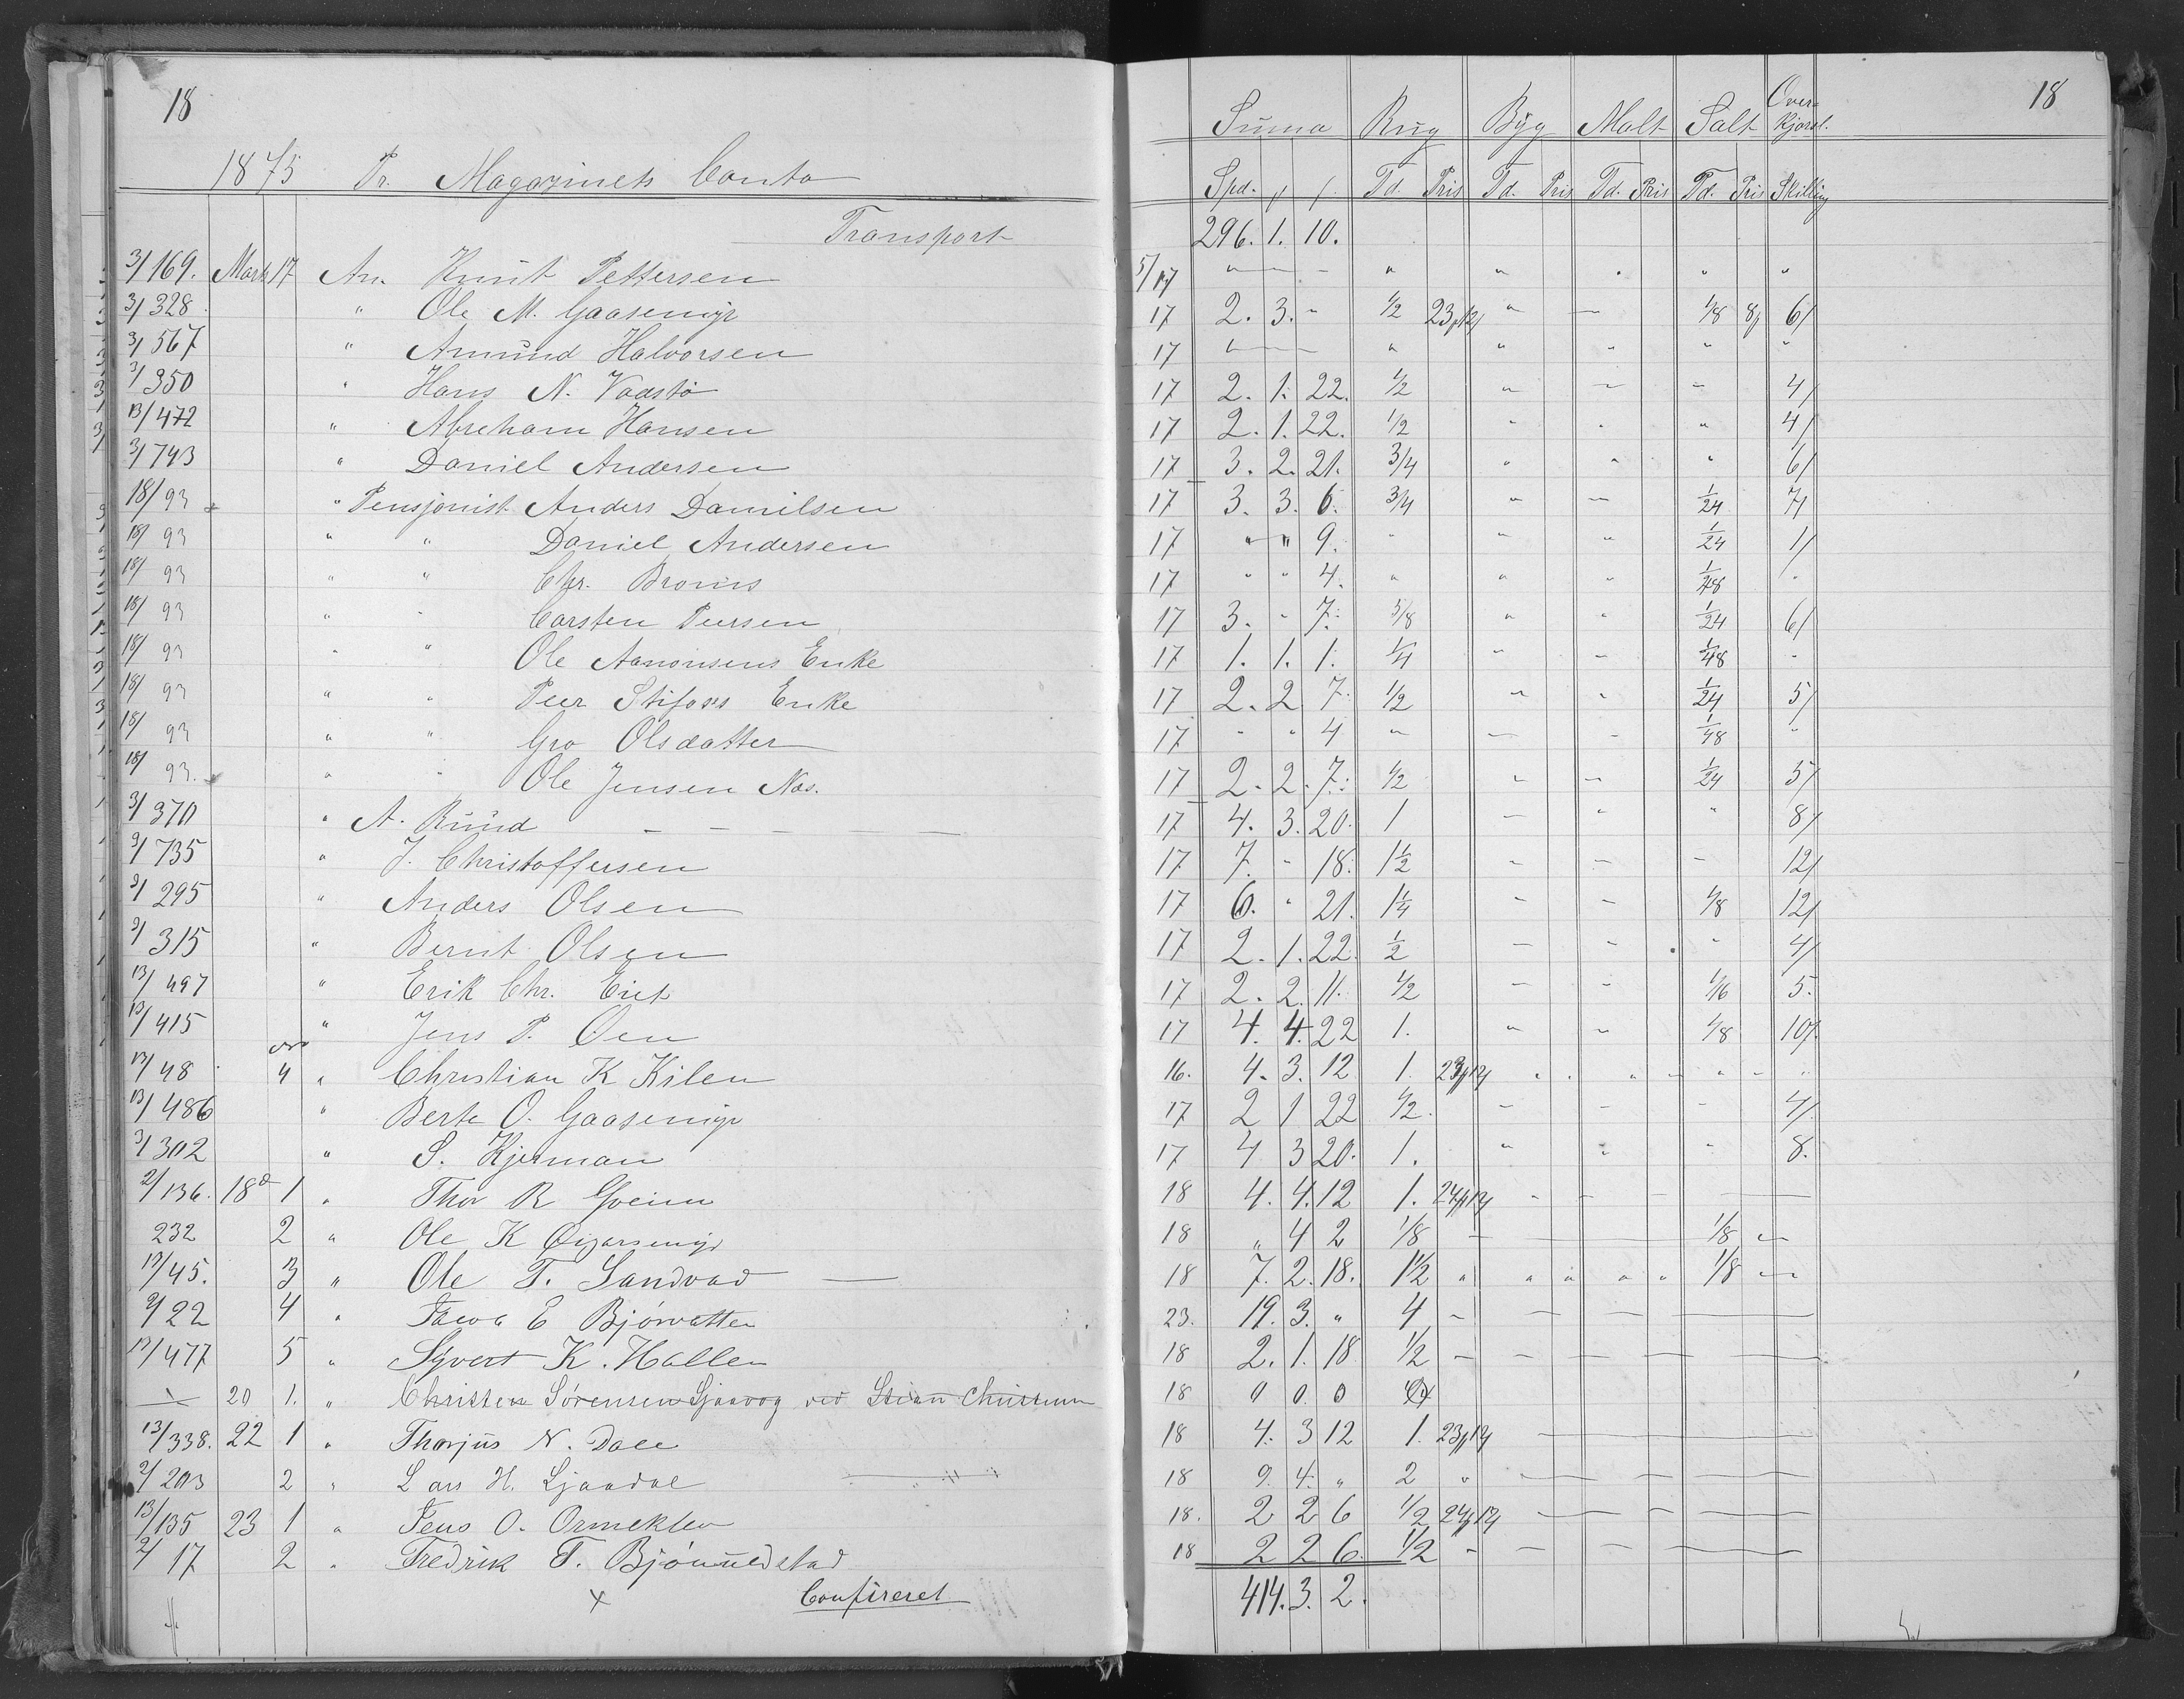 18
1875 Pr. Magazinets Conto
Transport
3/169. Marts 17 An. Knut Pettersen
3/328 " Ole M. Gaasemyr
3/567 " Amund Halvorsen
3/350 " Hans N. Vadstø
13/472 " Abreham Hansen
3/743 " Daniel Andersen
18/93 " Pensjonist Anders Danielsen
18/93 " " Daniel Andersen
18/93 " " Chr.
18/93 " " Carsten Peersen
18/93 " " Ole Aanonsens Enke
18/93 " " Peer Stifoss Enke
18/93 " " Gro Olsdatter
18/93. " " Ole Jensen Næs.
3/370 " A. Ruud
3/735 " J. Christoffersen
3/295 " Anders Olsen
3/315 " Bernt Olsen
13/497 " Erik Chr. Eiet
13/415 " Jens P. Øen
13/48 4 " Christian K Kilen
13/486 " Berte O. Gaasemyr
3/302 " S. Kjerman
2/136. 18 1 " Thor R Gveim
232 2 " Ole K
13/45. 3 " Ole T. Sandvad
2/22 4 " E Bjørvatten
13/477 5 " Syvert K. Hallen
20 1. " Christen Sørensen Sjaavag ved Stian Christensen
13/338. 22 1 " Thorjus N. Dale
2/203 2 " Lars H. Ljaadal
13/135 23 1 " Jens O. Ormeklev
2/17 2 " Fredrik T.
x Confireret
18
Suma Rug Byg Malt Salt Over-
kjørsl.
Spd. Td. Pris Td. Pris Td. Pris Td. Pris Skilling
296. 1. 10.
5/17 " " " " " "
17 2. 3. " 1/2 23/12 " " 1/8 8/ 6/
17 " " " " " "
17 2. 1. 22. 1/2 " " " 4/
17 2. 1. 22. 1/2 " " " 4/
17 3. 2. 21. 3/4 " " " 6/
17 3. 3. 6. 3/4 " " 1/24 7/
17 " " 9. " " " 1/24 1/
17 " " 4. " " " 1/48 "
17 3. " 7. 5/8 " " 1/24 6/
17 1. 1. 1. 1/4 " " 1/48 "
17 2. 2 7. 1/2 " " 1/24 5/
17 " " 4 " " " 1/48 "
17 2. 2. 7. 1/2 " " 1/24 5/
17 4. 3. 20. 1 " " " 8/
17 7. " 18. 1 1/2 " " " 12/
17 6. " 21. 1 1/4 " " 1/8 12/
17 2. 1. 22. 1/2 " " " 4/
17 2. 2. 11. 1/2 " " 1/16 5.
17 4. 4. 22 1. " " 1/8 10/
16. 4. 3. 12 1. 23/12 " " " " " " "
17 2 1 22 1/2. " " " 4/
17 4 3 20. 1. " " " 8.
18 4. 4. 12 1. 24/12
18 " 4 2 1/8 1/8
18 7. 2. 18. 1 1/2 " " " " " 1/8
23. 19. 3. " 4
18 2. 1. 18 1/2
18 0 0. 0
18 4. 3 12 1. 23/12
18 9. 4. " 2 "
18. 2 2 6 1/2 24/12
18 2 2 6. 1/2
414. 3. 2.